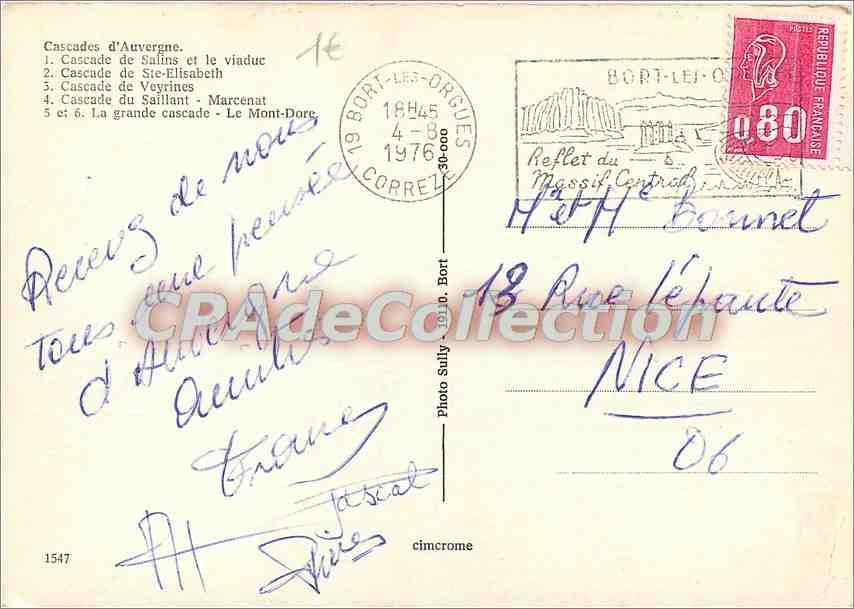 Cascades d'Auvergne.
1. Cascade de Salins et le viaduc
2. Cascade de Ste-Elisabeth
3. Cascade de Veyrines
4. Cascade du Saillant - Marcenat
5 et 6. La grande cascade - Le Mont-Dore
1€
19 BORT-LES-ORGUES
18H45
4-8
1976
CORREZE
BORT-LES-OR
Reflet du
Massif Central
POSTES
REPUBLIQUE FRANÇAISE
0,80
30-000
Recevez de nous
tous une pensée
d'Auvergne
Amitiés
Pascal
Mr et Me Bonnet
13 Rue Lépante
NICE
06
Photo Sully - 19110. Bort
CPAdeCollection
1547
cimcrome